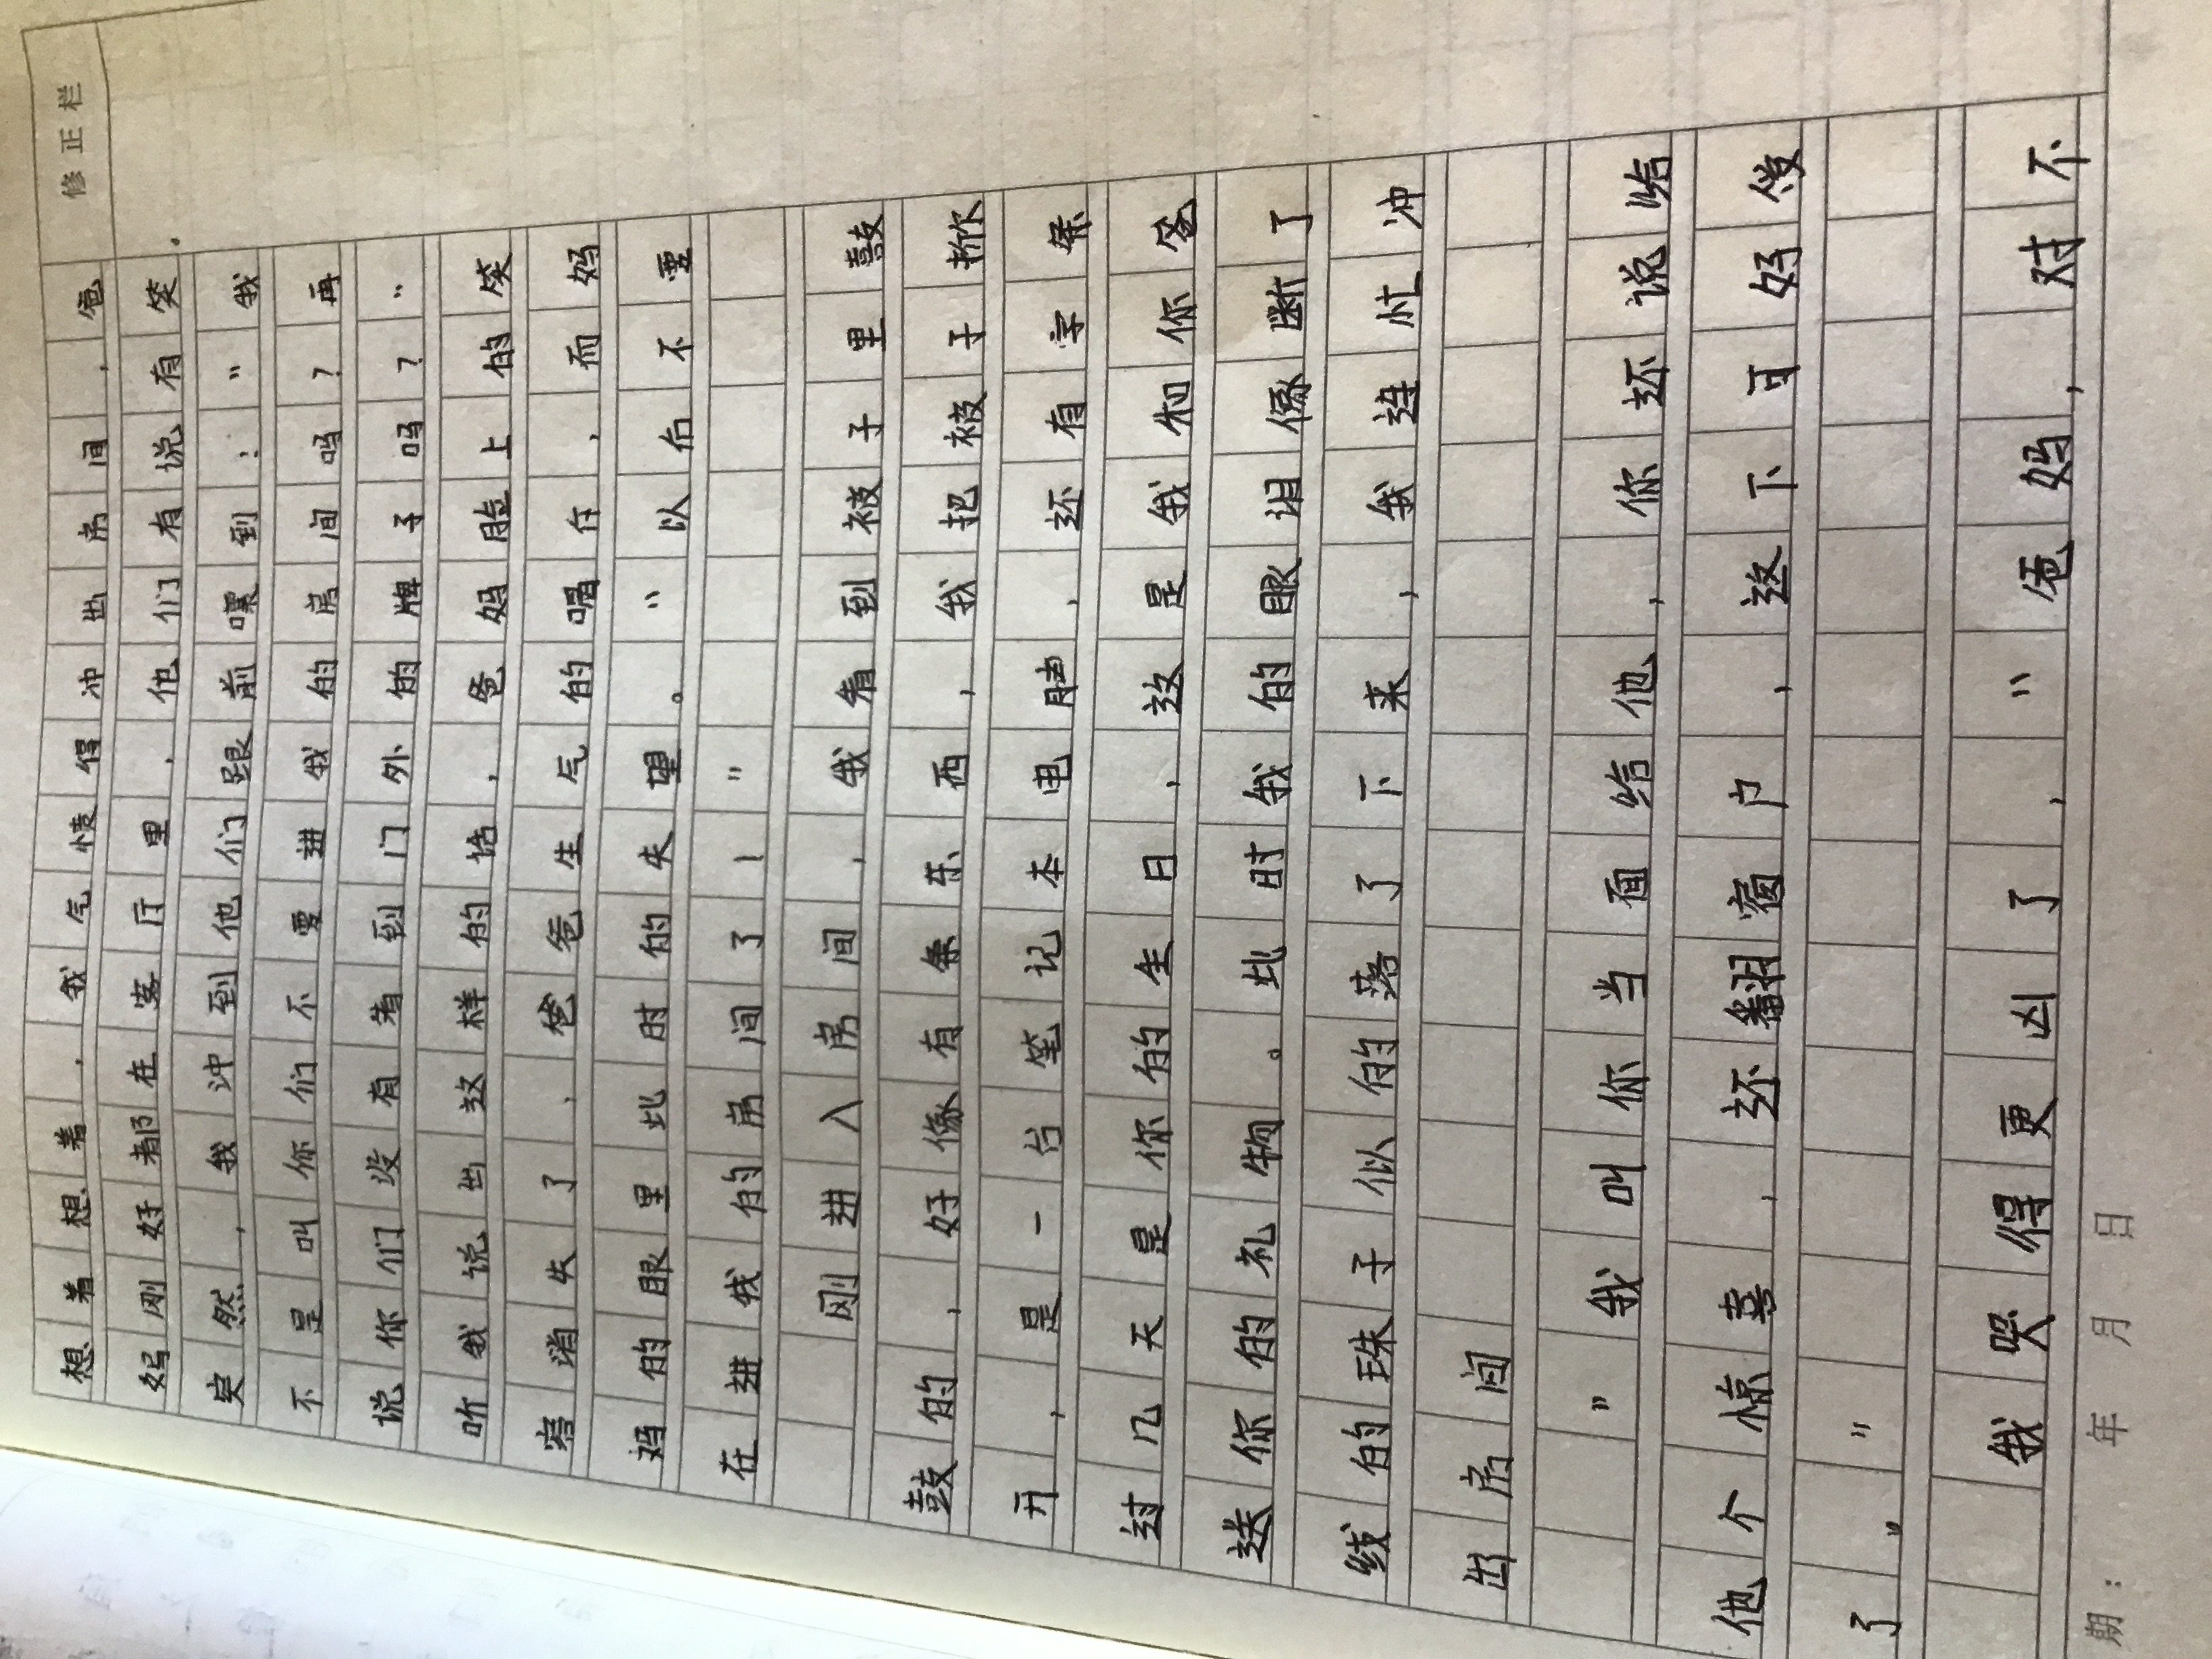 修正栏
想着想着，我气愤得冲出房间，爸
妈刚好都在客厅里，他们有说有笑。
突然，我冲到他们跟前嘿到：“我
不是叫你们不要进我的房间吗？再
说你们没有看到门外的牌子吗？”
听我说出这样的话，爸妈脸上的笑
容消失了，爸爸生气的喝斥，而妈
妈的眼里此时的失望。“以后不要
在进我的房间了！”
刚进入房间，我看到被子里鼓
鼓的，好像有条东西，我把被子掀
开，是一台笔记本电脑，还有字条
过几天是你的生日，这是我和你爸
送你的礼物。此时我的眼泪像断了
线的珠子似的落了下来，我连忙冲
出房间
“我叫你当面给他，你还说给
他个惊喜，还翻窗户，这下可好傻
了。”
我哭得更凶了，“爸妈，对不
期： 年 月 日